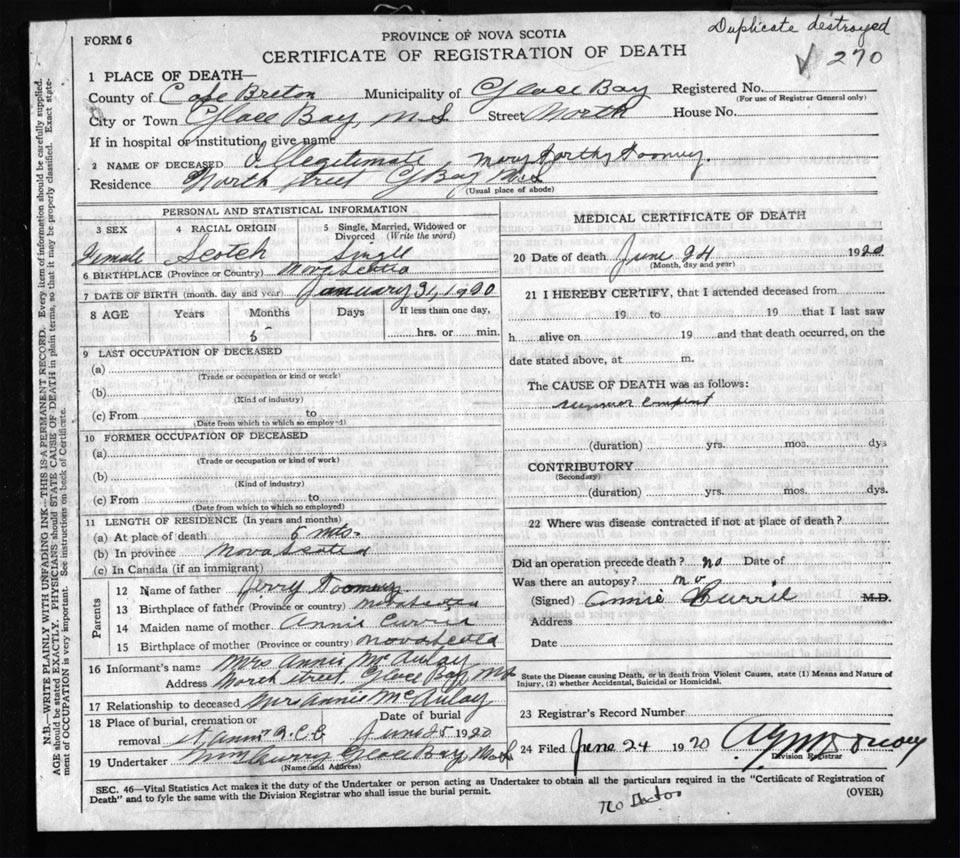 Duplicate destroyed
FORM 6
PROVINCE OF NOVA SCOTIA
CERTIFICATE OF REGISTRATION OF DEATH
270
1 PLACE OF DEATH—
County of Cape Breton Municipality of Glace Bay Registered No.
(For use of Registrar General only)
City or Town Glace Bay, N.S Street North House No.
If in hospital or institution, give name
2 NAME OF DECEASED Illegitimate Mary Dorthy Toomey.
Residence North Street G Bay N.S
(Usual place of abode)
PERSONAL AND STATISTICAL INFORMATION
3 SEX 4 RACIAL ORIGIN 5 Single, Married, Widowed or Divorced (Write the word)
Female Scotch Singll
6 BIRTHPLACE (Province or Country) Nova Scotia
7 DATE OF BIRTH (month, day and year) January 31, 1920
8 AGE Years Months Days If less than one day,
5 hrs. or min.
9 LAST OCCUPATION OF DECEASED
(a)
(Trade or occupation or kind or work)
(b)
(Kind of industry)
(c) From to
(Date from which to which so employed)
10 FORMER OCCUPATION OF DECEASED
(a)
(Trade or occupation or kind of work)
(b)
(Kind of industry)
(c) From to
(Date from which to which so employed)
11 LENGTH OF RESIDENCE (In years and months)
(a) At place of death 5 mts.
(b) In province Nova Scotia
(c) In Canada (if an immigrant)
Parents
12 Name of father Jerry Toomey
13 Birthplace of father (Province or country) N Scotia
14 Maiden name of mother Annie Currie
15 Birthplace of mother (Province or country) Nova Scotia
16 Informant's name Mrs Annie McAulay
Address North Street Glace Bay NS
17 Relationship to deceased Mrs Annie McAulay
18 Place of burial, cremation or removal St Anns R.C.C Date of burial June 25 1920
19 Undertaker Glace Bay N.S
(Name and Address)
MEDICAL CERTIFICATE OF DEATH
20 Date of death June 24 1920
(Month, day and year)
21 I HEREBY CERTIFY, that I attended deceased from
19 to 19 that I last saw
h alive on 19 and that death occurred, on the
date stated above, at m.
The CAUSE OF DEATH was as follows:
(duration) yrs. mos. dys
CONTRIBUTORY
(Secondary)
(duration) yrs. mos. dys.
22 Where was disease contracted if not at place of death?
Did an operation precede death? no Date of
Was there an autopsy? no
(Signed) Annie Currie M.D.
Address
Date
State the Disease causing Death, or in death from Violent Causes, state (1) Means and Nature of
Injury, (2) whether Accidental, Suicidal or Homicidal.
23 Registrar's Record Number
24 Filed June 24 1920
Division Registrar
SEC. 46—Vital Statistics Act makes it the duty of the Undertaker or person acting as Undertaker to obtain all the particulars required in the "Certificate of Registration of
Death" and to fyle the same with the Division Registrar who shall issue the burial permit.
(OVER)
No Doctor
N.B.—WRITE PLAINLY WITH UNFADING INK—THIS IS A PERMANENT RECORD. Every item of information should be carefully supplied.
AGE should be stated EXACTLY. PHYSICIANS should STATE CAUSE OF DEATH in plain terms, so that it may be properly classified. Exact state-
ment of OCCUPATION is very important. See instructions on back of Certificate.